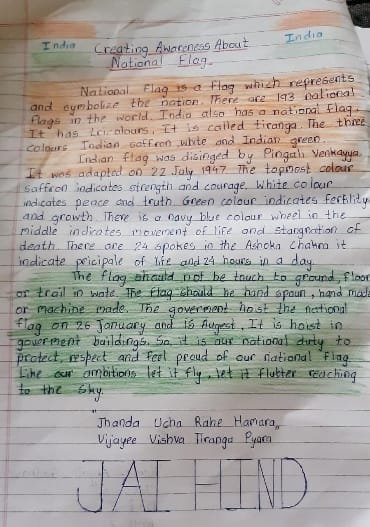 India Creating Awareness About India
National Flag
National Flag is a flag which represents
and symbolize the nation. There are 193 national
flags in the world. India also has a national flag.
It has tri colours. It is called tiranga. The three
colours Indian saffron, white and Indian green.
Indian flag was disinged by Pingali Venkayya.
It was adapted on 22 July 1947. The topmost colour
saffron indicates strength and courage. White colour
indicates peace and truth. Green colour indicates fertility
and growth. There is a navy blue colour wheel in the
middle indicates movement of life and stangnation of
death. There are 24 spokes in the Ashoka Chakra it
indicate pricipale of life and 24 hours in a day.
The flag should not be touch to ground, floor
or trail in wate. The flag should be hand spoun, hand made
or machine made. The goverment hoist the national
flag on 26 January and 15 Augest. It is hoist in
gouerment buildings. So, it is our national duty to
protect, respect and feel proud of our national flag.
Like our ambitions let it fly, let it flutter reaching
to the sky.
"Jhanda Ucha Rahe Hamara,
Vijayee Vishva Tiranga Pyara
JAI HIND